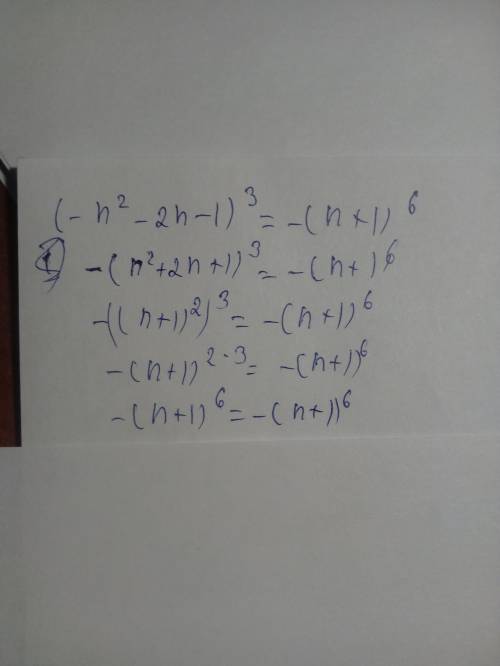 (-n² - 2n - 1)³ = -(n+1)⁶
-(n² + 2n + 1)³ = -(n+)⁶
-((n+1)²)³ = -(n+1)⁶
-(n+1)²·³ = -(n+1)⁶
-(n+1)⁶ = -(n+1)⁶